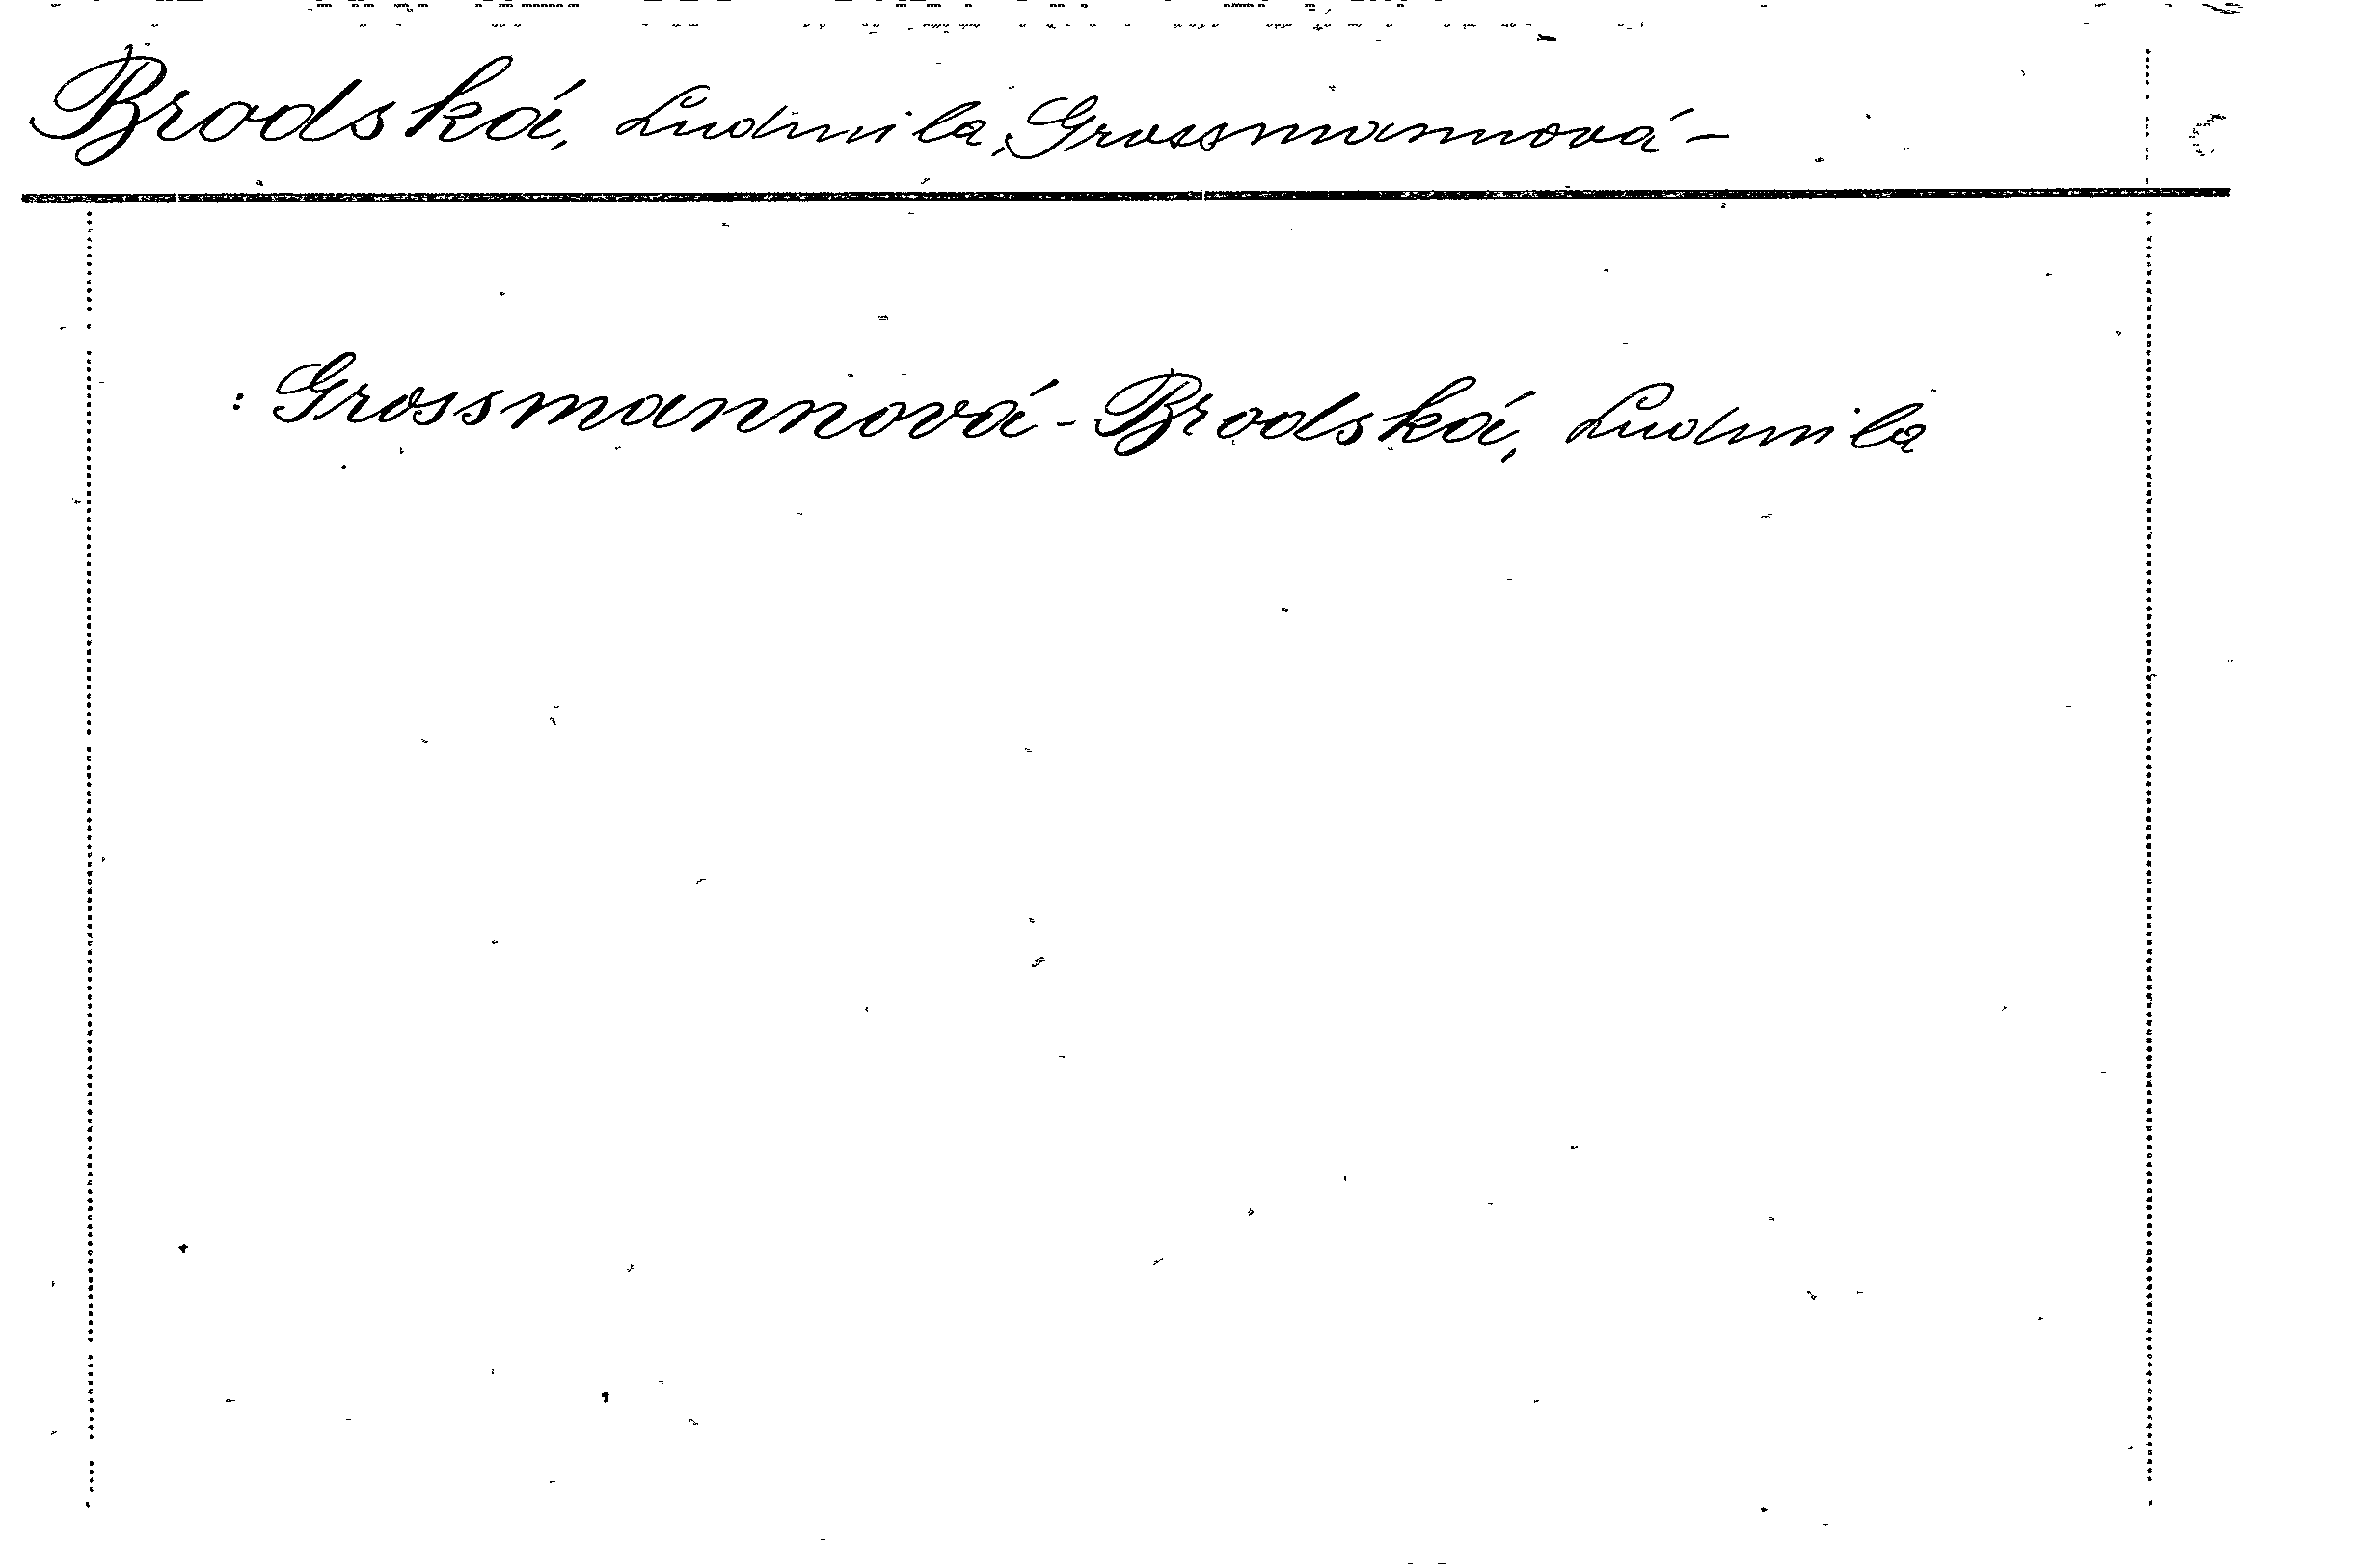 Brodská, Ludmila, Grossmannová-
: Grossmannová-Brodská, Ludmila